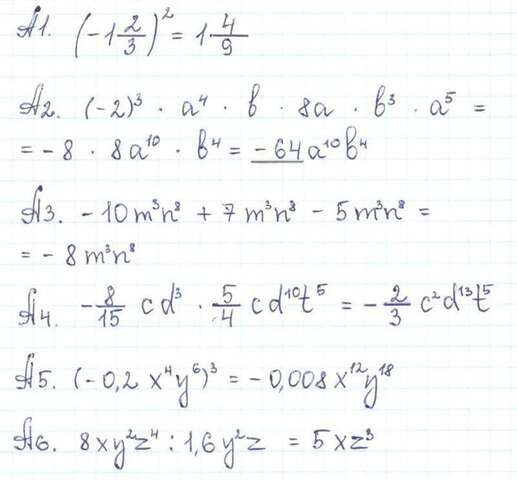 А1. (-1 2/3)² = 1 4/9
А2. (-2)³ · a⁴ · b · 8a · b³ · a⁵ =
= -8 · 8a¹⁰ · b⁴ = -64a¹⁰b⁴
А3. -10m³n⁸ + 7m³n⁸ - 5m³n⁸ =
= -8m³n⁸
А4. -8/15 cd³ · 5/4 cd¹⁰t⁵ = -2/3 c²d¹³t⁵
А5. (-0,2x⁴y⁶)³ = -0,008x¹²y¹⁸
А6. 8xy²z⁴ : 1,6y²z = 5xz³